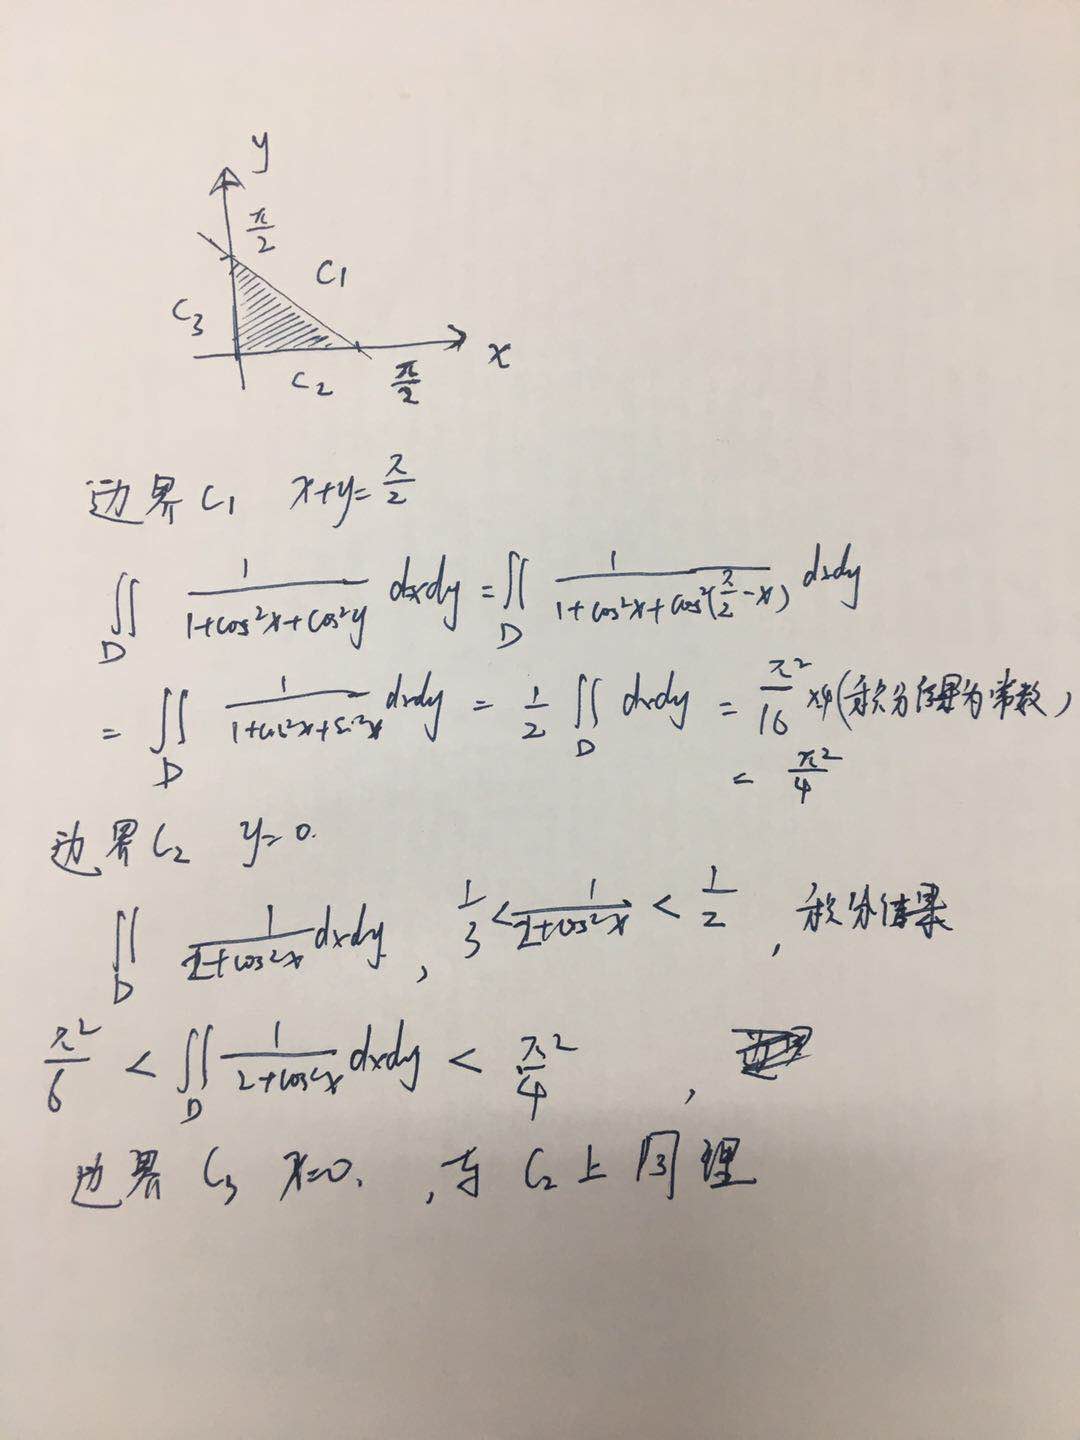 y
π/2
C1
C3
x
C2
π/2
边界C1 x+y=π/2
∬_D 1/(1+cos²x+cos²y) dxdy = ∬_D 1/(1+cos²x+cos²(π/2-x)) dxdy
= ∬_D 1/(1+cos²x+sin²x) dxdy = 1/2 ∬_D dxdy = π²/16 ×4(积分结果为常数)
= π²/4
边界C2 y=0.
∬_D 1/(2+cos²x) dxdy, 1/3 < 1/(2+cos²x) < 1/2, 积分结果
π²/6 < ∬_D 1/(2+cos²x) dxdy < π²/4,
边界C3 x=0. ,与C2上同理